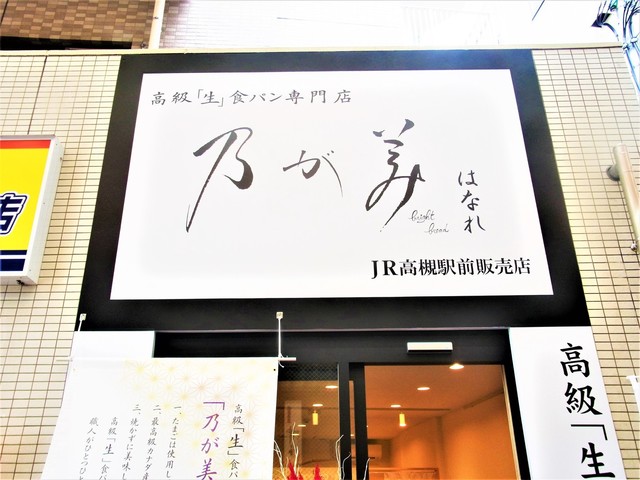 高級「生」食パン専門店
乃が美
はなれ
JR高槻駅前販売店
店
高級「生
高級「生」食パ
「乃が美
一、たまごは使用し
二、最高級カナダ産
三、焼かずに美味し
高級「生」食パ
職人がひとつひと